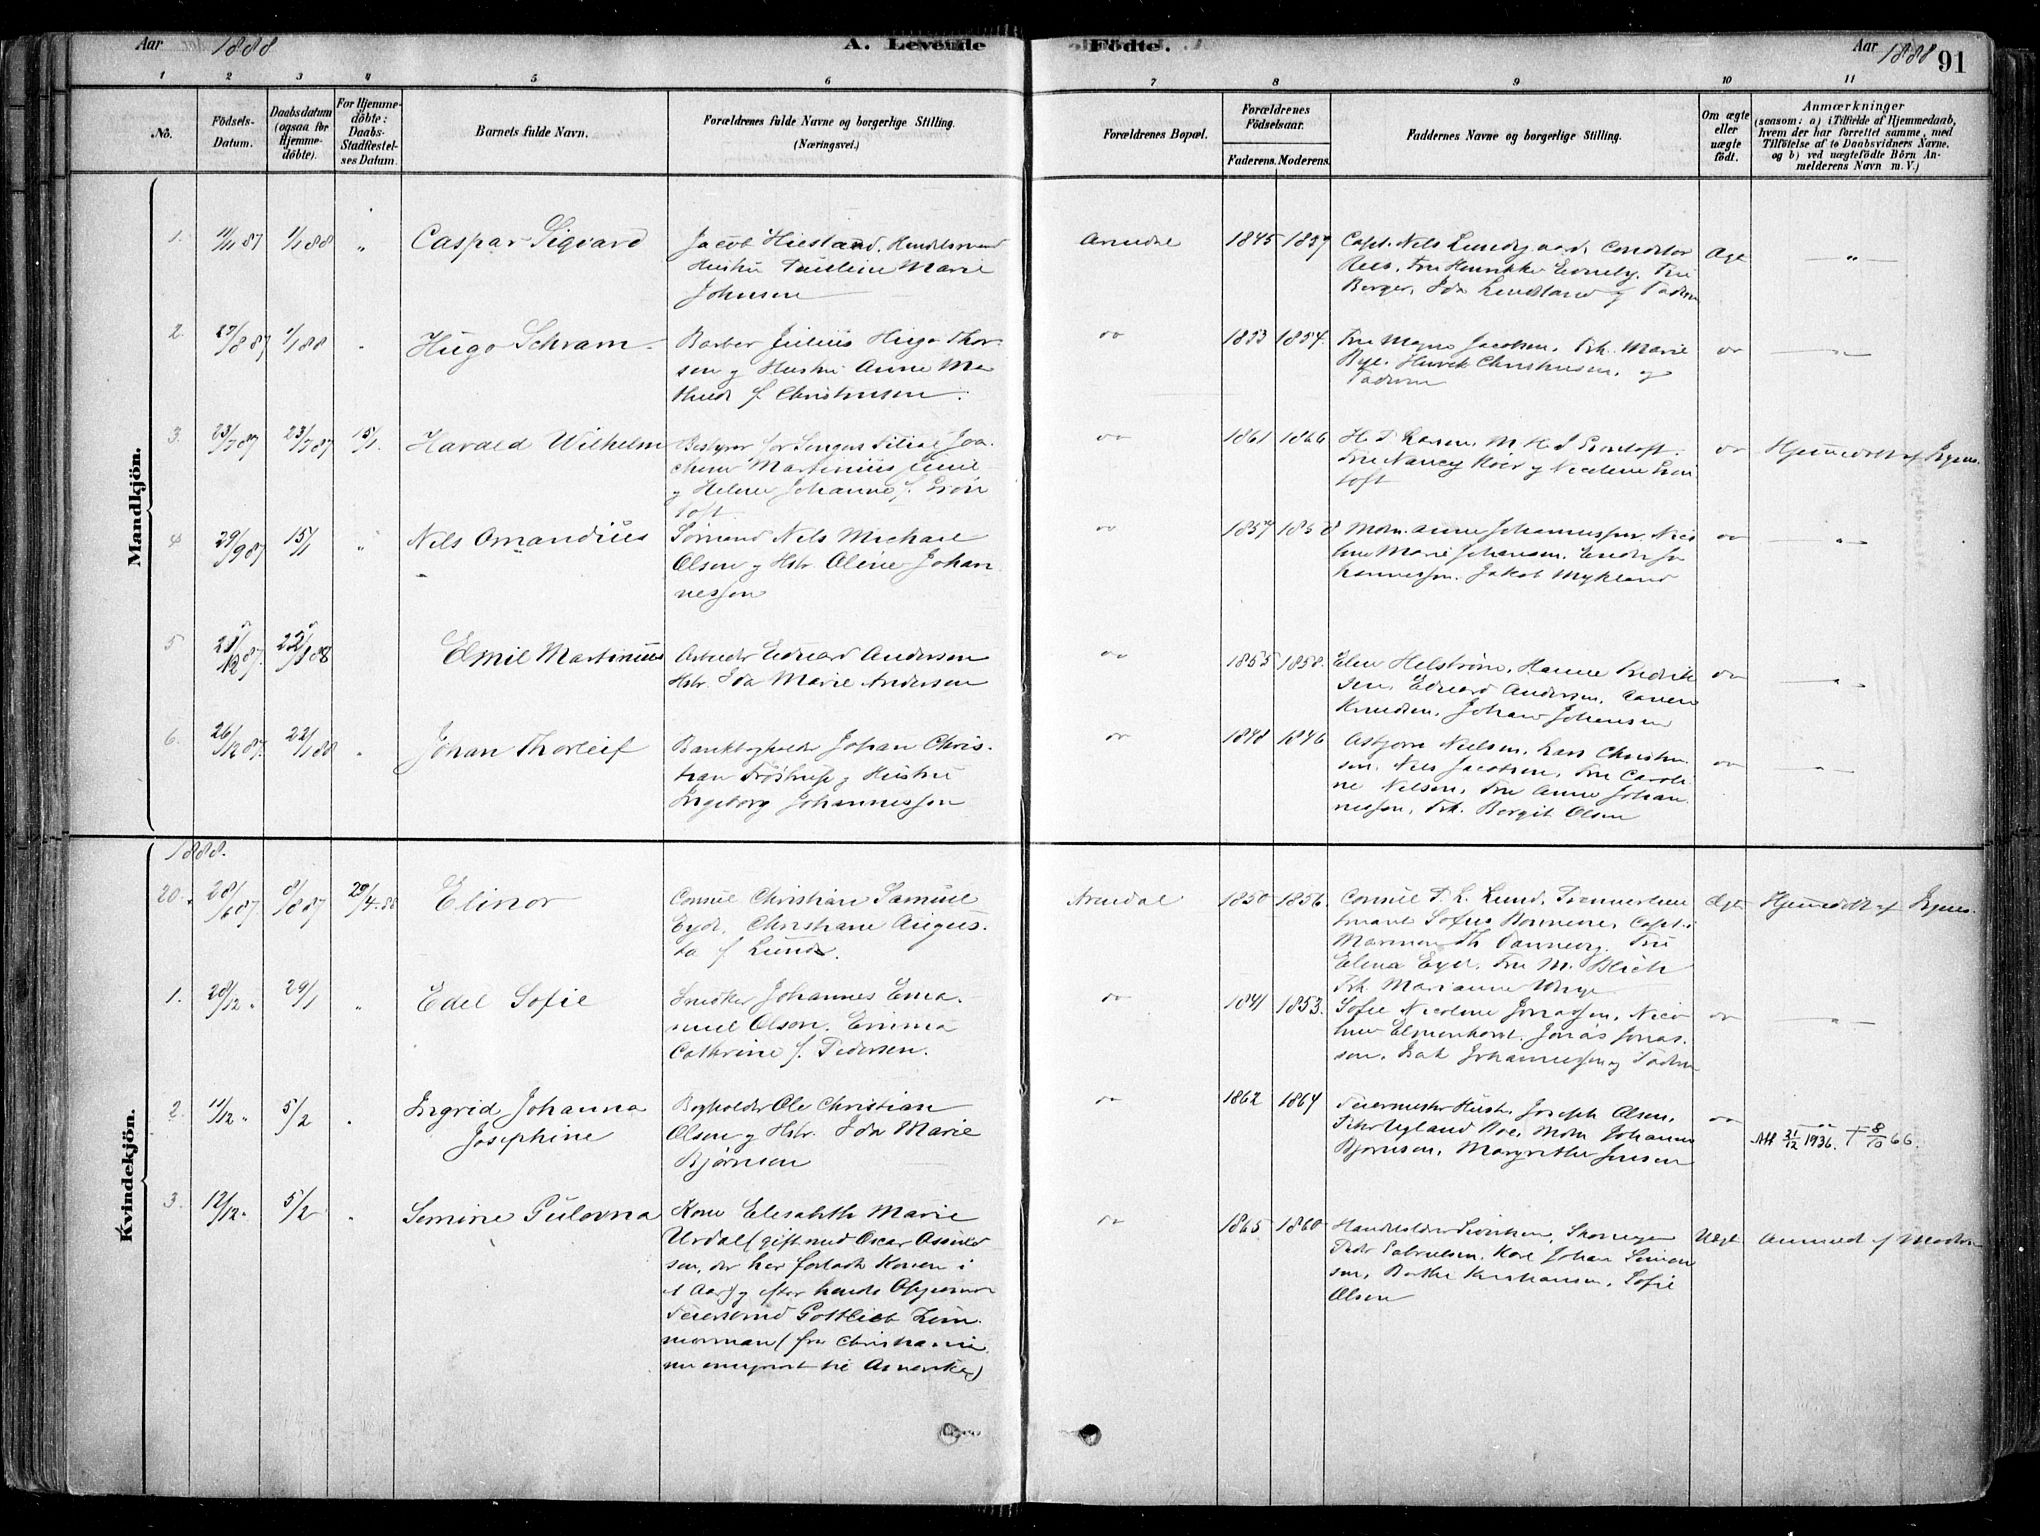 Aar 1888
A. Levende
Födte.
Aar 1888
91
1 2 3 4 5 6 7 8 9 10 11
No.
Födsels-
Datum.
Daabsdatum
(ogsaa for
Hjemme-
döbte).
For Hjemme-
döbte:
Daabs-
Stadfæstel-
ses Datum.
Barnets fulde Navn.
Forældrenes fulde Navne og borgerlige Stilling.
(Næringsvei.)
Forældrenes Bopæl.
Forældrenes
Födselsaar.
Faderens. Moderens.
Faddernes Navne og borgerlige Stilling.
Om ægte
eller
uægte
födt.
Anmærkninger
(saasom: a) i Tilfælde af Hjemmedaab,
hvem der har forrettet samme, med
Tilföielse af to Daabsvidners Navne.
og b) ved uægtefödte Börn An-
melderens Navn m. V.)
Mandkjön.
1. 11/11 87 1/1 88 " Caspar Sigvard
Jacob Hiestand,
Hustru Pauline Marie
Johnsen
Arendal 1845 1857
Capt. Nils Lundegaard, Conditor
Fru Henrikke Evensby, Fru
Berger, Ida Lindland og Faderen
Ægt "
2. 27/8 87 1/1 88 Hugo Schram
Barber Julius Hugo Thor-
sen og Hustru Anne Ma-
thilde f. Christensen.
do 1853 1854.
Fru Magna Jacobsen, Frk. Marie
Bye, Henrik Christensen, og
Faderen
do
3. 23/7 87 23/7 87 15/1. Harald Wilhelm
Bestyrer for Singers Filial Joa-
chim Martinius Emil
og Helene Johanne f. Grön
toft
do 1861 1866
H. T. Larsen,
Fru Nancy og Nicoline Grön
toft
do Hjemmedöbt af
4 29/9 87 15/1 " Nils Amandius
Sömand Nils Michael
Olsen og Hstr. Oline Johan
nessen
do 1857 1858
Mdm. Anne Johannessen, Nico
line Marie Johansen, Jo
hannessen. Jakob Mykland
do "
5 21/12 87. 22/1 88 Emil Martinius
Arbeider Edvard Andersen
Hstr. Ida Marie Andersen
do 1855 1858.
Elen Helström, Hanne Fredrik
sen, Edvard Andersen,
Knudsen, Johan Johansen
do "
6. 26/12 87. 22/1 88 Johan Thorleif
Bankbogholder Johan Chris-
tian Tröstrup og Hustru
Ingeborg Johannessen
do 1848 1846
Asbjörn Nielsen, Lars Christen
sen, Nils Jacobsen, Fru Caroli
ne Nielsen, Fru Anne Johan
nessen, Frk. Borgit Olsen
do "
Kvindekjön.
1888.
20. 28/6 87. 8/8 87 29/4 88 Elinor
Consul Christian Samuel
Eyde, Christiane Augus-
ta f. Lund.
Arendal 1850 1856.
Consul Lund,
Sofus Capt.
Th. Fru
Elena Eyde. Fru M. Blich
Frk. Marianne
Ægt. Hjemmedöbt af
1. 20/12 " 29/1 " Edel Sofie
Snedker Johannes Ema-
nuel Olsen. Emma
Cathrine f. Pedersen.
do 1841 1853.
Sofie Nicoline Jonassen, Nico
line Elmenhorst. Jonas Jonas-
sen, Johannessen og Faderen
do "
2. 11/12 " 5/2 Ingrid Johanna
Josephine
Bogholder Ole Christian
Olsen og Hstr. Ida Marie
Björnsen
do 1862 1864
Feiermester Hust. Joseph Olsen,
Mdm Johanne
Björnsen, Margrethe Jensen
do
Att 21/12 1936. † 8/10 66.
3. 12/12. 5/2 Semine Pulovna
Kone Elisabeth Marie
Urdal (gift med Oscar
sen, der har forladt Konen i
1 Aar) og efter hendes Opgivende
Feiersvend Gottlieb Zim-
merman (fra Christiania
nu emigreret til Amerika)
do 1865 1860
Karl Johan Simon
sen, Berthe Kristiansen, Sofie
Olsen
Uægt Anmeldt af Moderen